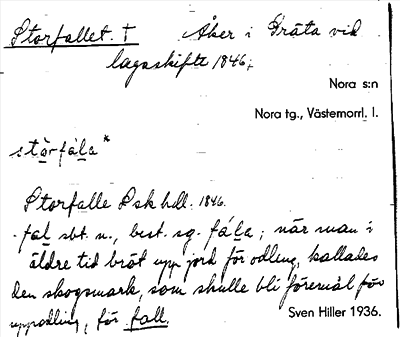 Storfallet. † Åker i Bräta vid
lagaskifte 1846.
Nora s:n
Nora tg., Västernorrl. l.
stòrfàḷa*
Storfalle Lsk hdl. 1846.
-faḷ sbt. n., best. sg. fáḷa; när man i
äldre tid bröt upp jord för odling, kallades
den skogsmark, som skulle bli föremål för
uppodling, för fall.
Sven Hiller 1936.